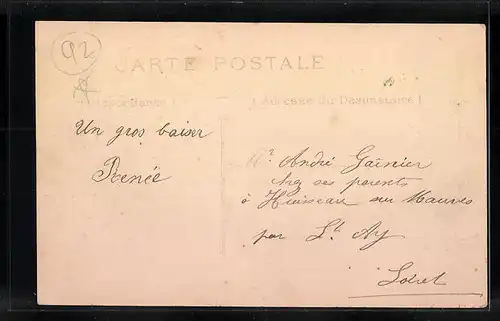 92
CARTE POSTALE
Correspondance
( Adresse du Destinataire )
Un gros baiser
Renée
Mr André Garnier
chez ses parents
à Huisseau sur Mauves
par St Ay
Loiret